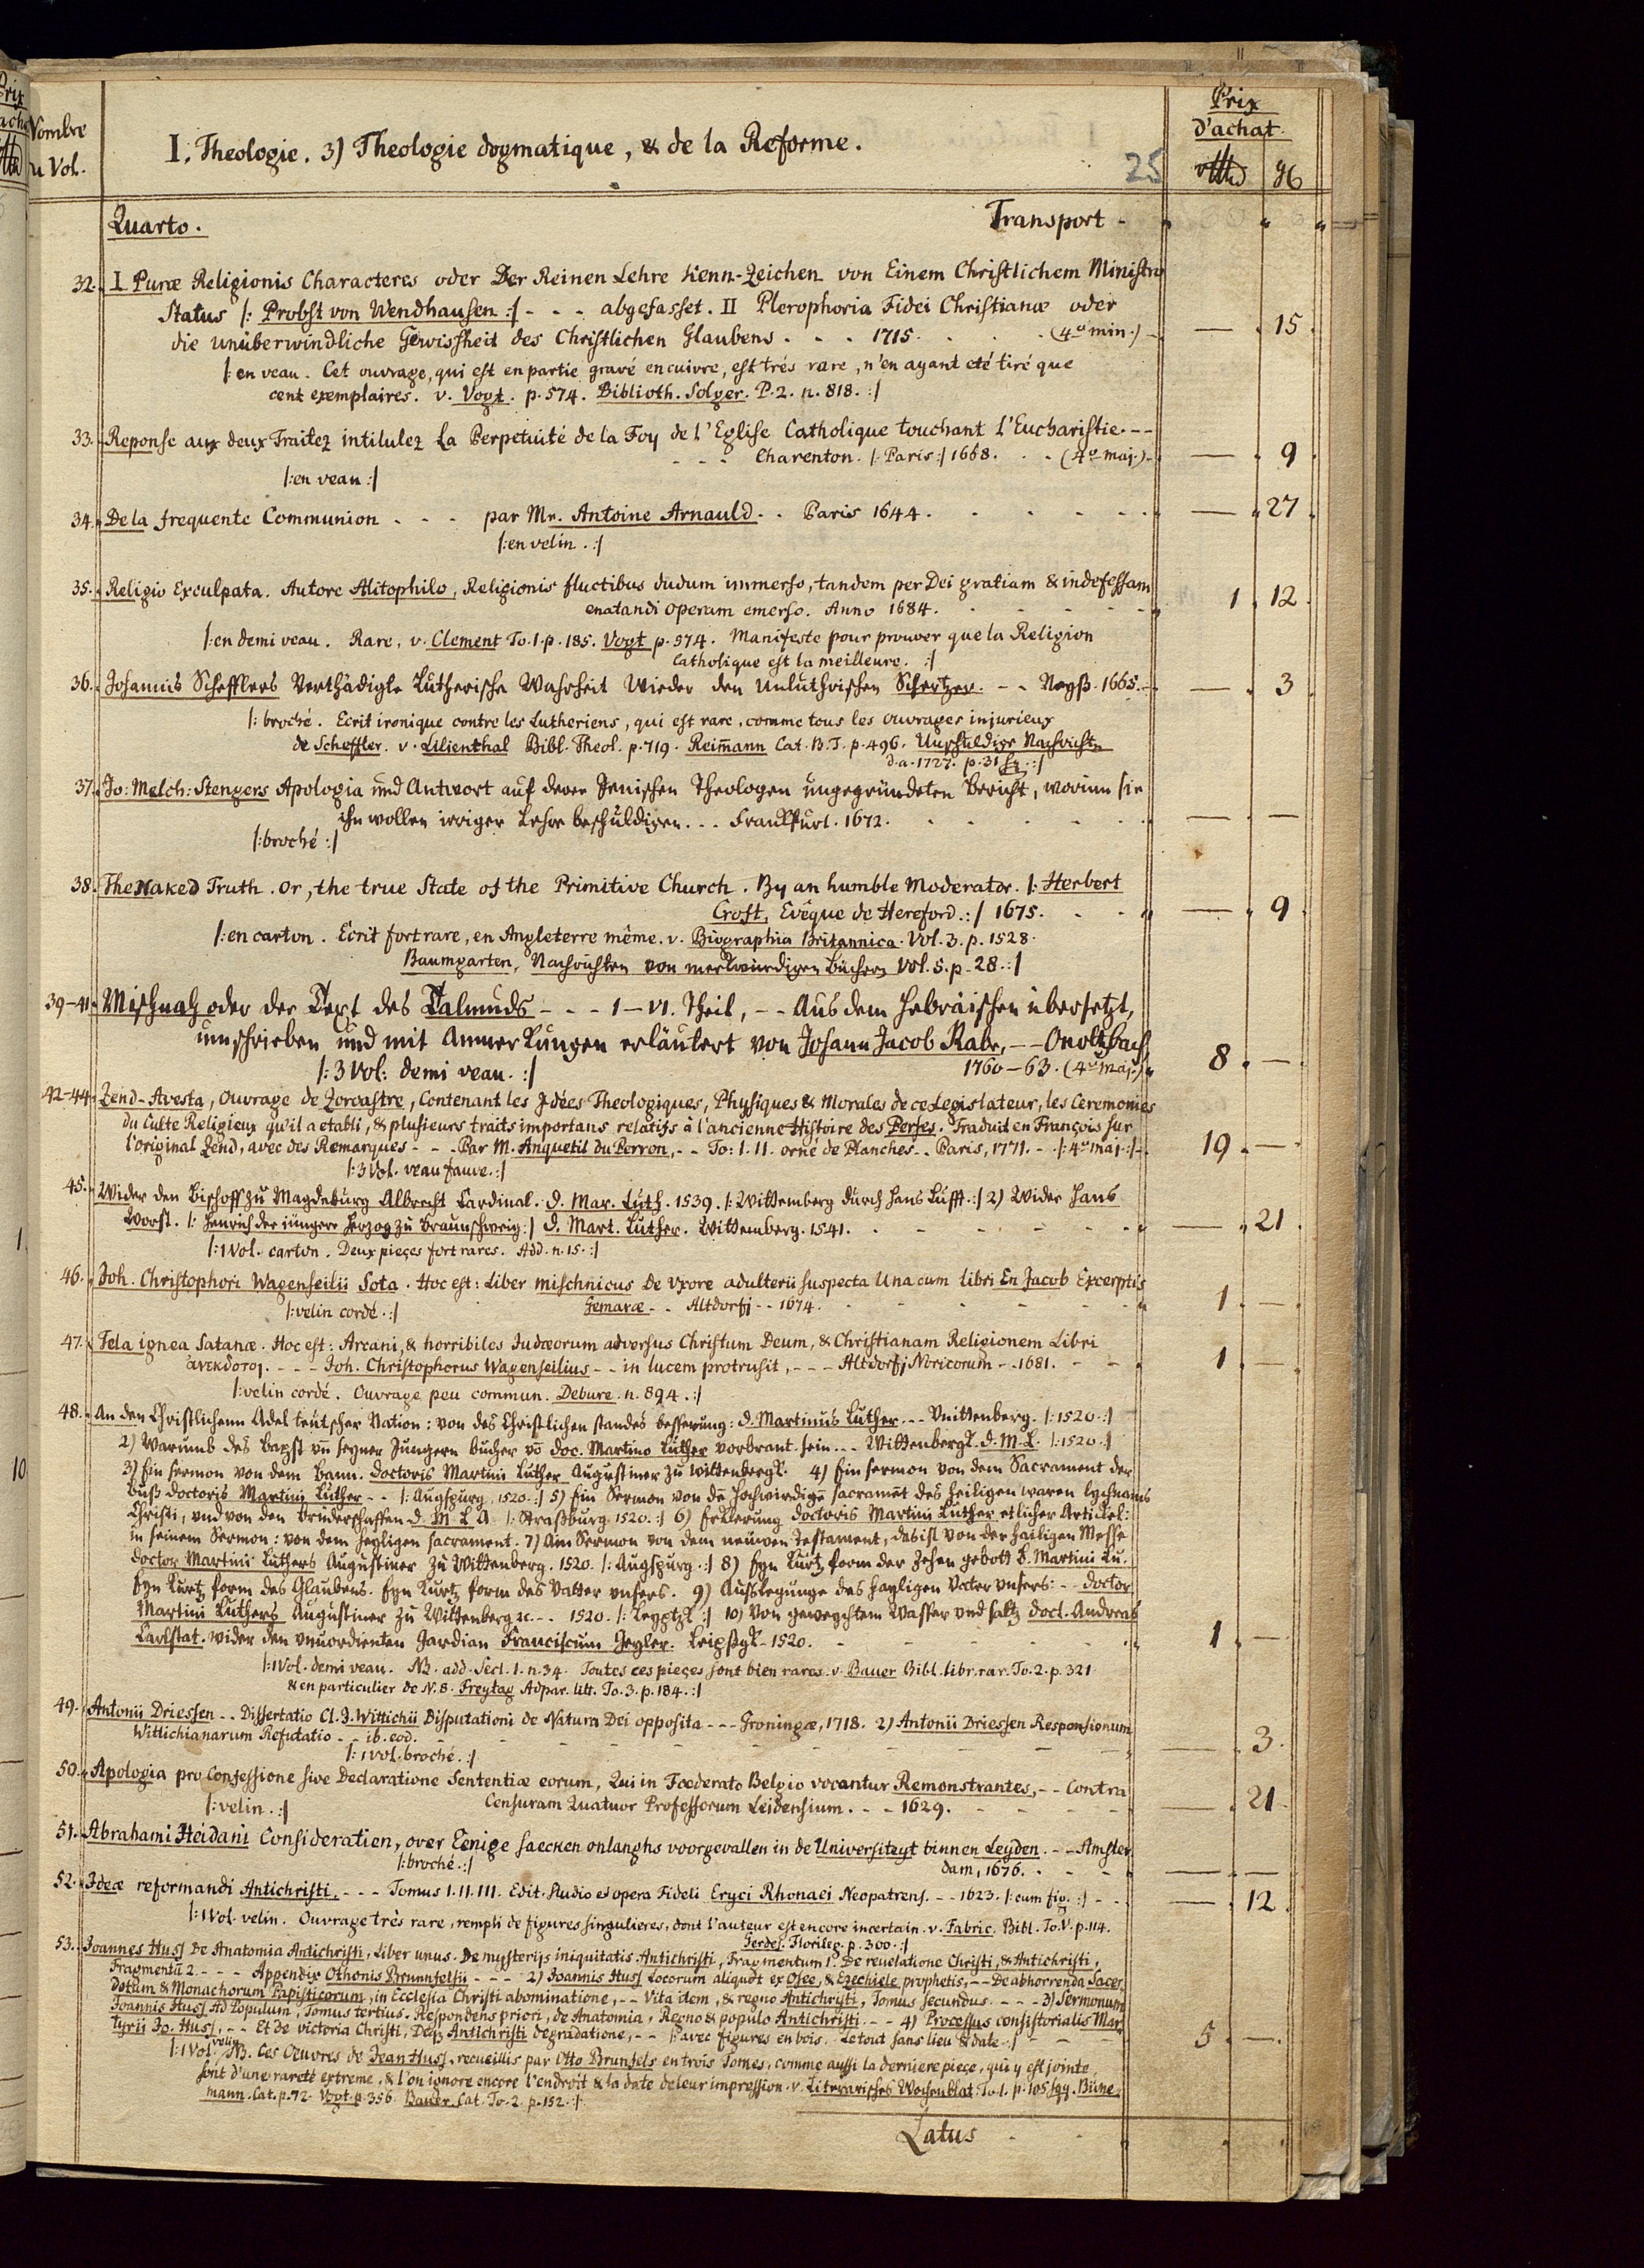 Nombre
u Vol.
I. Theologie. 3) Theologie dogmatique, & de la Reforme.
25
Prix
d'achat.
Quarto.
Transport -
32. I Puræ Religionis Characteres oder Der Reinen Lehre Kenn-Zeichen von Einem Christlichem Ministro
Status |: Probst von Wendhausen :| - - - abgefasset. II Plerophoria Fidei Christianæ oder
die unüberwindliche Gewissheit des Christlichen Glaubens . - . 1715. . . . (4º min.) — 15.
|: en veau. Cet ouvrage, qui est en partie gravé en cuivre, est trés rare, n'en ayant eté tiré que
cent exemplaires. v. Vogt. p. 574. Biblioth. Solger. P. 2. n. 818. :|
33. Reponse aux deux Traitez intitulez La Perpetuité de la Foy de l'Eglise Catholique touchant l'Eucharistie. - -
- - - Charenton. |: Paris :| 1668. . . (4º maj.) — 9
|: en veau :|
34. De la frequente Communion . - - par Mr. Antoine Arnauld. . . Paris 1644. — 27.
|: en velin. :|
35. Religio Exculpata. Autore Alitophilo, Religionis fluctibus dudum immerso, tandem per Dei gratiam & indefessam
enatandi operam emerso. Anno 1684. 1. 12.
|: en demi veau. Rare, v. Clement To. 1. p. 185. Vogt p. 574. Manifeste pour prouver que la Religion
Catholique est la meilleure. :|
36. Johannis Schefflers Verthädigte Lutherische Wahrheit Wieder den Unluthrischen Schertzer. - - Neyß. 1665. — 3
|: broché. Ecrit ironique contre les Lutheriens, qui est rare, comme tous les ouvrages injurieux
de Scheffler. v. Lilienthal Bibl. Theol. p. 719. Reimann Cat. B. T. p. 496. Unschuldige Nachricht.
d. a. 1727. p. 31 sq. :|
37. Jo: Melch: Stengers Apologia und Antwort auf derer Jenischen Theologen ungegründeten Bericht, worinn sie
ihn wollen irriger Lehre beschuldigen. . . Franckfurt. 1672. — —
|: broché :|
38. The Naked Truth. or, the true State of the Primitive Church. By an humble Moderator. |: Herbert
Croft, Evêque de Hereford. :| 1675. — 9.
|: en carton. Ecrit fort rare, en Angleterre même. v. Biographia Britannica. Vol. 3. p. 1528.
Baumgarten, Nachrichten von merkwürdigen Büchern Vol. 5. p. 28. :|
39-41. Mischnah oder der Text des Talmuds - - - I-VI. Theil, - - Aus dem Hebräischen übersetzt,
umschrieben und mit Anmerkungen erläutert von Johann Jacob Rabe, - - Onoltzbach
|: 3 Vol: demi veau. :| 1760-63. (4º maj.) 8. —
42-44. Zend-Avesta, Ouvrage de Zoroastre, Contenant les Idées Theologiques, Physiques & Morales de ce Legislateur, les Ceremonies
du Culte Religieux qu'il a etabli, & plusieurs traits importans relatifs à l'ancienne Histoire des Perses. Traduit en François sur
l'original Zend, avec des Remarques - - - Par M. Anquetil du Perron, - - To: 1. 11. orné de Planches. . Paris, 1771. - |: 4º maj. :| 19. —
|: 3 Vol. veau fauve. :|
45. Wider den Bischoff zu Magdeburg Albrecht Cardinal. D. Mar. Luth. 1539. |: Wittemberg durch Hans Lufft. :| 2) Wider Hans
Worst. |: Henrich der jüngere Herzog zu Braunschweig :| D. Mart. Luther. Wittemberg. 1541. — 21.
|: 1 Vol. carton. Deux pieçes fort rares. Add. n. 15. :|
46. Joh. Christophori Wagenseilii Sota. Hoc est: Liber mischnicus de Uxore adulterii suspecta Una cum libri En Jacob Excerptis
Gemaræ - - Altdorfj - - 1674. 1. —
|: velin cordé. :|
47. Tela ignea Satanæ. Hoc est: Arcani, & horribiles Judæorum adversus Christum Deum, & Christianam Religionem Libri
ἀνεκδοτοj. - - - Joh. Christophorus Wagenseilius - - in lucem protrusit, - - - Altdorfj Noricorum - - 1681. 1. —
|: velin cordé. Ouvrage peu commun. Debure. n. 894. :|
48. An den Christlichenn Adel teutscher Nation: von des Christlichen standes besserung: D. Martinus Luther - - Vuittenberg. |: 1520. :|
2) Warumb des Bapst uñ seyner Jungern bucher võ Doc. Martino Luther vorbrant sein. . . Wittenbergk. D. M. L. |: 1520. :|
3) Ein sermon von dem Bann. Doctoris Martini Luther Augustiner zu wittenbergk. 4) Ein sermon von dem Sacrament der
Buß doctoris Martini Luther - - |: Augspurg, 1520. :| 5) Ein Sermon von de hochwirdige sacramēt des heiligen waren lychnams
Christi, und von den bruderschaffen D. M. L. A. |: Straßburg. 1520. :| 6) Erklerung doctoris Martini Luther etlicher Artickel:
in seinem Sermon: von dem heyligen sacrament. 7) Ain Sermon von dem neuwen Testament, das ist von der hailigen Messe
doctor Martini Luthers Augustiner zu Wittenberg. 1520. |: Augspurg. :| 8) Eyn kurtz form der zehen gebott D. Martini Lu.
Eyn kurtz form des Glaubens. Eyn kurtz form des Vatter unsers. 9) Ausslegunge des heyligen Vater unsers: - - doctor
Martini Luthers Augustiner zu Wittenberg ꝛc. - - 1520. |: Leyptzk :| 10) Von geweychtem Wasser und saltz doct. Andreas
Carlstat. wider den unuordienten Gardian Franciscum Seyler. Leipßgk - 1520. 1. —
|: 1 Vol. demi veau. NB. add. Sect. 1. n. 34. Toutes ces pieçes sont bien rares. v. Bauer Bibl. libr. rar. To. 2. p. 321.
& en particulier de N. 8. Freytag Adpar. litt. To. 3. p. 184. :|
49. Antonii Driessen - - Dissertatio Cl. J. Wittichii Disputationi de Natura Dei opposita - - - Groningæ, 1718. 2) Antonii Driessen Responsionum
Wittichianarum Refutatio - - ib. eod. — 3.
|: 1 Vol. broché. :|
50. Apologia pro Confessione sive Declaratione Sententiæ eorum, Qui in Fœderato Belgio vocantur Remonstrantes, - - Contra
Censuram Quatuor Professorum Leidensium. - - 1629. — 21.
|: velin. :|
51. Abrahami Heidani Consideratien, over Eenige saecken onlanghs voorgevallen in de Universiteyt binnen Leyden. - - Amster,
dam, 1676. — —
|: broché. :|
52. Ideæ reformandi Antichristi. - - - Tomus I. II. III. Edit. studio et opera Fideli Eryci Rhonaei Neopatrens. - - 1623. |: cum fig. :| — 12.
|: 1 Vol. velin. Ouvrage très rare, rempli de figures singulieres, dont l'auteur est encore incertain. v. Fabric. Bibl. To. V. p. 114.
Gerdes. Florileg. p. 300. :|
53. Joannes Huss De Anatomia Antichristi, Liber unus. De mysterijs iniquitatis Antichristi, Fragmentum I. De reuelatione Christi, & Antichristi,
Fragmentū 2. - - - Appendix Othonis Brunnfelsii - - - 2) Joannis Huss Locorum aliquot ex Osee, & Ezechiele prophetis, - - De abhorrenda Sacer,
dotum & Monachorum Papisticorum, in Ecclesia Christi abominatione, - - Vita idem, & regno Antichristi, Tomus secundus. - - - 3) Sermonum
Joannis Huss Ad Populum, Tomus tertius. Respondens priori, de Anatomia, Regno & populo Antichristi. - - 4) Processus consistorialis Mar,
tyrii Jo. Huss, - - Et de victoria Christi, Deq3 Antichristi degradatione, - - |: avec figures en bois. Le tout sans lieu & date. :| 5. —
|: 1 Vol. velin. NB. Ces Oeuvres de Jean Huss, recueillis par Otto Brunfels en trois Tomes, comme aussi la derniere piece, qui y est jointe,
sont d'une rareté extreme, & l'on ignore encore l'endroit & la date de leur impression. v. Literarisches Wochenblat. To. 1. p. 105 sqq. Büne,
mann. Cat. p. 72. Vogt. p. 356. Bauer. Cat. To. 2. p. 152. :|
Latus